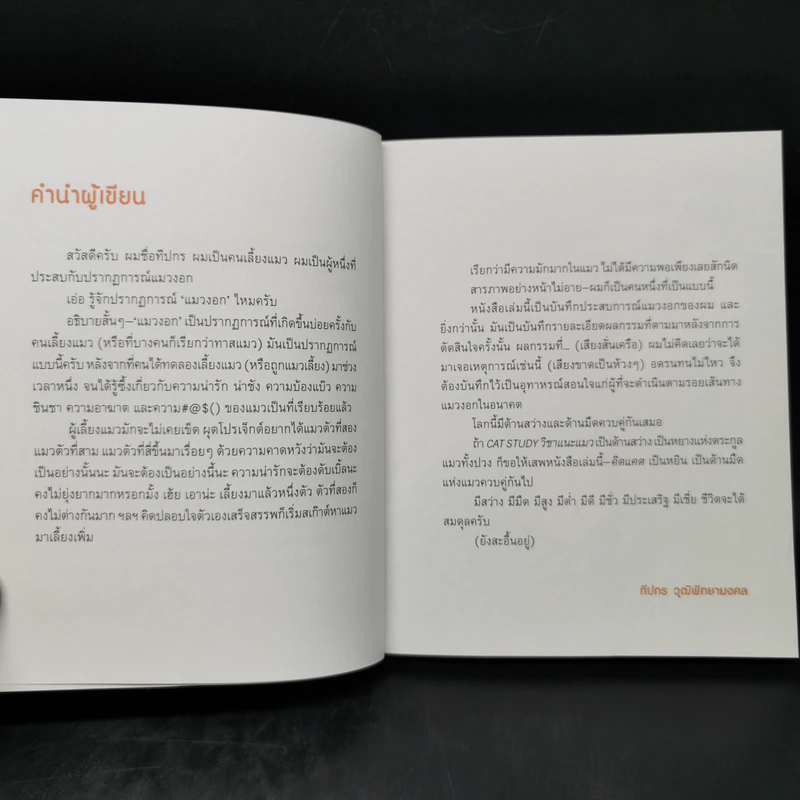 คำนำผู้เขียน
สวัสดีครับ ผมชื่อทีปกร ผมเป็นคนเลี้ยงแมว ผมเป็นผู้หนึ่งที่
ประสบกับปรากฏการณ์แมวงอก
เอ่อ รู้จักปรากฏการณ์ ‘แมวงอก’ ไหมครับ
อธิบายสั้นๆ—‘แมวงอก’ เป็นปรากฏการณ์ที่เกิดขึ้นบ่อยครั้งกับ
คนเลี้ยงแมว (หรือที่บางคนก็เรียกว่าทาสแมว) มันเป็นปรากฏการณ์
แบบนี้ครับ หลังจากที่คนได้ทดลองเลี้ยงแมว (หรือถูกแมวเลี้ยง) มาช่วง
เวลาหนึ่ง จนได้รู้ซึ้งเกี่ยวกับความน่ารัก น่าชัง ความบ้องแบ๊ว ความ
ซินชา ความอาฆาต และความ#@$() ของแมวเป็นที่เรียบร้อยแล้ว
ผู้เลี้ยงแมวมักจะไม่เคยเข็ด ผุดโปรเจ็กต์อยากได้แมวตัวที่สอง
แมวตัวที่สาม แมวตัวที่สี่ขึ้นมาเรื่อยๆ ด้วยความคาดหวังว่ามันจะต้อง
เป็นอย่างนั้นนะ มันจะต้องเป็นอย่างนี้นะ ความน่ารักจะต้องดับเบิ้ลนะ
คงไม่ยุ่งยากมากหรอกมั้ง เฮ้ย เอาน่ะ เลี้ยงมาแล้วหนึ่งตัว ตัวที่สองก็
คงไม่ต่างกันมาก ฯลฯ คิดปลอบใจตัวเองเสร็จสรรพก็เริ่มสเก๊าต์หาแมว
มาเลี้ยงเพิ่ม
เรียกว่ามีความมักมากในแมว ไม่ได้มีความพอเพียงเลยสักนิด
สารภาพอย่างหน้าไม่อาย—ผมก็เป็นคนหนึ่งที่เป็นแบบนี้
หนังสือเล่มนี้เป็นบันทึกประสบการณ์แมวงอกของผม และ
ยิ่งกว่านั้น มันเป็นบันทึกรายละเอียดผลกรรมที่ตามมาหลังจากการ
ตัดสินใจครั้งนั้น ผลกรรมที่... (เสียงสั่นเครือ) ผมไม่คิดเลยว่าจะได้
มาเจอเหตุการณ์เช่นนี้ (เสียงขาดเป็นห้วงๆ) อดรนทนไม่ไหว จึง
ต้องบันทึกไว้เป็นอุทาหรณ์สอนใจแก่ผู้ที่จะดำเนินตามรอยเส้นทาง
แมวงอกในอนาคต
โลกนี้มีด้านสว่างและด้านมืดควบคู่กันเสมอ
ถ้า CAT STUDY วิชาแนะแมว เป็นด้านสว่าง เป็นหยางแห่งตระกูล
แมวทั้งปวง ก็ขอให้เสพหนังสือเล่มนี้—คิดแคต เป็นหยิน เป็นด้านมืด
แห่งแมวควบคู่กันไป
มีสว่าง มีมืด มีสูง มีต่ำ มีดี มีชั่ว มีประเสริฐ มีเชี่ย ชีวิตจะได้
สมดุลครับ
(ยังสะอื้นอยู่)
ทีปกร วุฒิพิทยามงคล